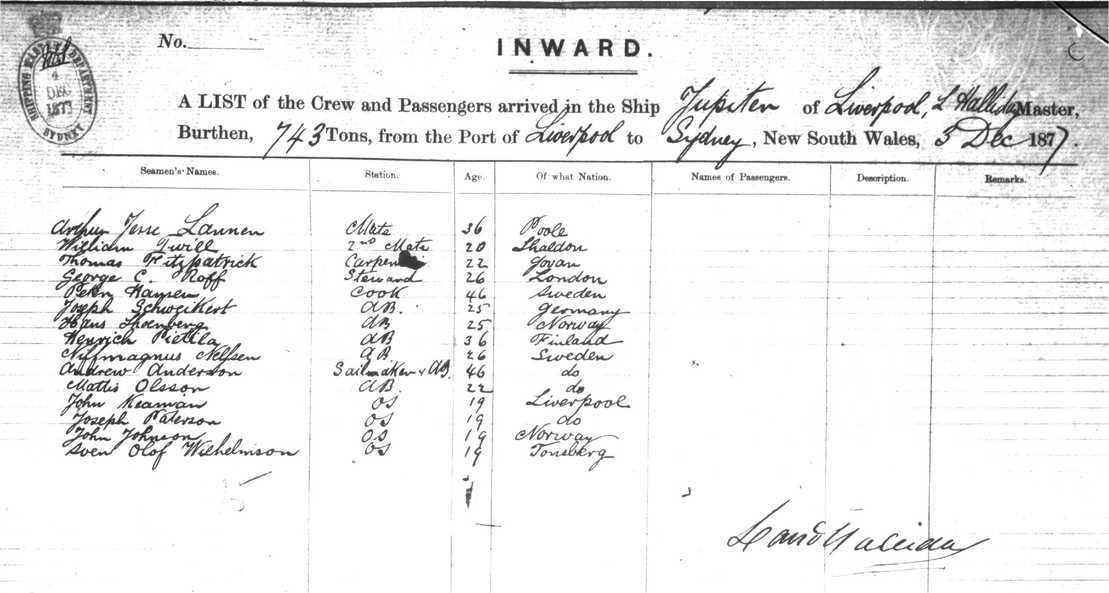 No.
INWARD.
SHIPPING MASTER'S DEPARTMENT
4
DEC
1877
SYDNEY
A LIST of the Crew and Passengers arrived in the Ship Jupiter of Liverpool, L Halliday Master,
Burthen, 743 Tons, from the Port of Liverpool to Sydney, New South Wales, 3 Dec 1877.
Seamen's Names. Station. Age. Of what Nation. Names of Passengers. Description. Remarks.
Arthur Jesse Lannen Mate 36 Poole
William Twill 2nd Mate 20 Shaldon
Thomas Fitzpatrick Carpenter 22 Govan
George C. Roff Steward 26 London
Peter Hansen Cook 46 Sweden
Joseph Schweikert AB. 25 Germany
Hans AB 25 Norway
Henrich Pietila AB 36 Finland
Nelsen AB 26 Sweden
Andrew Anderson Sailmaker & AB. 46 do
Mattis Olsson AB. 22 do
John OS 19 Liverpool
Joseph Paterson OS 19 do
John Johnson OS 19 Norway
Sven Olof Wilhelmson OS 19 Tonsberg
15